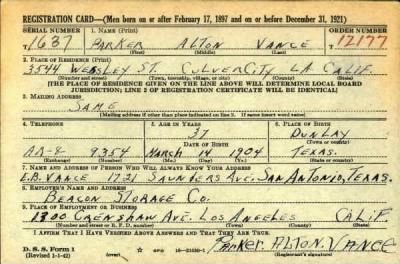 REGISTRATION CARD—(Men born on or after February 17, 1897 and on or before December 31, 1921)
SERIAL NUMBER 1. NAME (Print) ORDER NUMBER
1637 PARKER ALTON VANCE 12177
(First) (Middle) (Last)
2. PLACE OF RESIDENCE (Print)
3544 WESLEY ST. CULVER CITY L.A. CALIF.
(Number and street) (Town, township, village, or city) (County) (State)
[THE PLACE OF RESIDENCE GIVEN ON THE LINE ABOVE WILL DETERMINE LOCAL BOARD
JURISDICTION; LINE 2 OF REGISTRATION CERTIFICATE WILL BE IDENTICAL]
3. MAILING ADDRESS
SAME
(Mailing address if other than place indicated on line 2. If same insert word same)
4. TELEPHONE 5. AGE IN YEARS 6. PLACE OF BIRTH
37 DUNLAY
DATE OF BIRTH (Town or county)
9354 MARCH 14 1904 TEXAS.
(Exchange) (Number) (Mo.) (Day) (Yr.) (State or country)
7. NAME AND ADDRESS OF PERSON WHO WILL ALWAYS KNOW YOUR ADDRESS
E.B. VANCE 1731 SAUNDERS AVE. SAN ANTONIO, TEXAS.
8. EMPLOYER'S NAME AND ADDRESS
BEACON STORAGE CO.
CRENSHAW AVE. LOS ANGELES CALIF.
(Number and street or R. F. D. number) (Town) (County) (State)
I AFFIRM THAT I HAVE VERIFIED ABOVE ANSWERS AND THAT THEY ARE TRUE.
D. S. S. Form 1 PARKER ALTON VANCE
(Revised 1-1-42) (over) (Registrant's signature)